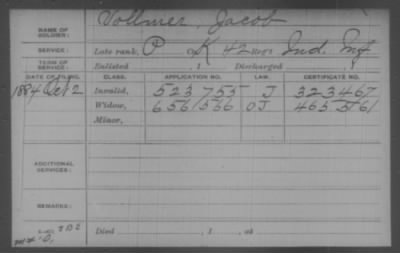 Vollmer, Jacob
NAME OF SOLDIER:
SERVICE: Late rank, P Co. K 42 Reg't Ind. Inf
TERM OF SERVICE: Enlisted , 1 Discharged , 1
DATE OF FILING. CLASS. APPLICATION NO. LAW. CERTIFICATE NO.
1884 Oct 2 Invalid, 523755 J 323467
Widow, 656566 OJ 465561
Minor,
ADDITIONAL SERVICES:
REMARKS:
Died , 1 , at